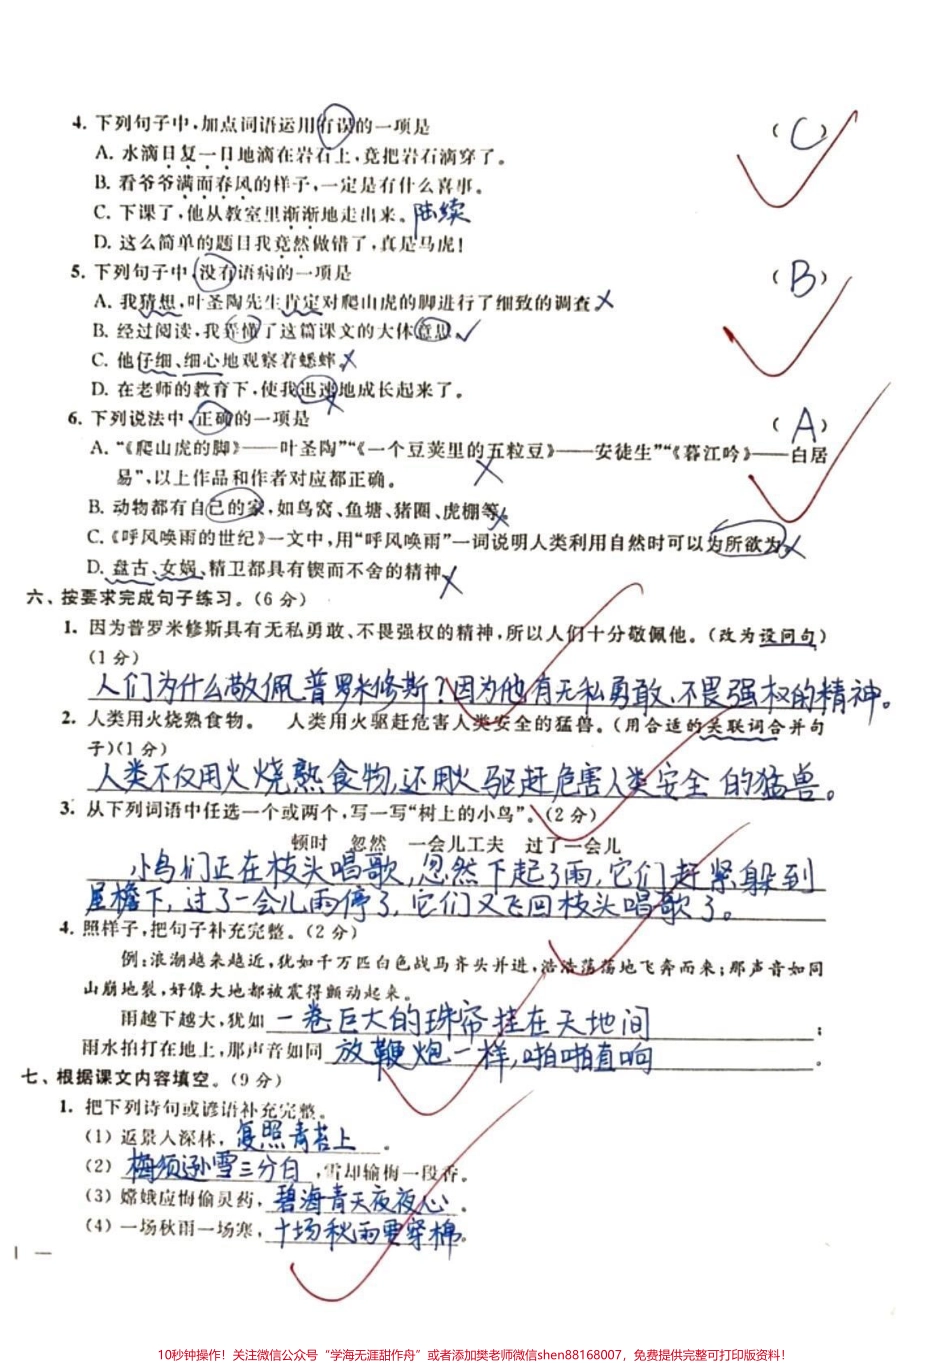 4. 下列句子中,加点词语运用有误的一项是 ( C )
A. 水滴日复一日地滴在岩石上,竟把岩石滴穿了。
B. 看爷爷满面春风的样子,一定是有什么喜事。
C. 下课了,他从教室里渐渐地走出来。陆续
D. 这么简单的题目我竟然做错了,真是马虎!
5. 下列句子中,没有语病的一项是 ( B )
A. 我猜想,叶圣陶先生肯定对爬山虎的脚进行了细致的调查。
B. 经过阅读,我弄懂了这篇课文的大体意思。
C. 他仔细、细心地观察着蟋蟀。
D. 在老师的教育下,使我迅速地成长起来了。
6. 下列说法中,正确的一项是 ( A )
A. “《爬山虎的脚》——叶圣陶”“《一个豆荚里的五粒豆》——安徒生”“《暮江吟》——白居
易”,以上作品和作者对应都正确。
B. 动物都有自己的家,如鸟窝、鱼塘、猪圈、虎棚等。
C.《呼风唤雨的世纪》一文中,用“呼风唤雨”一词说明人类利用自然时可以为所欲为。
D. 盘古、女娲、精卫都具有锲而不舍的精神。
六、按要求完成句子练习。(6 分)
1. 因为普罗米修斯具有无私勇敢、不畏强权的精神,所以人们十分敬佩他。(改为设问句)
(1 分)
人们为什么敬佩普罗米修斯?因为他有无私勇敢、不畏强权的精神。
2. 人类用火烧熟食物。 人类用火驱赶危害人类安全的猛兽。(用合适的关联词合并句
子)(1 分)
人类不仅用火烧熟食物,还用火驱赶危害人类安全的猛兽。
3. 从下列词语中任选一个或两个,写一写“树上的小鸟”。(2 分)
顿时 忽然 一会儿工夫 过了一会儿
小鸟们正在枝头唱歌,忽然下起了雨,它们赶紧躲到
屋檐下,过了一会儿雨停了,它们又飞回枝头唱歌了。
4. 照样子,把句子补充完整。(2 分)
例:浪潮越来越近,犹如千万匹白色战马齐头并进,浩浩荡荡地飞奔而来;那声音如同
山崩地裂,好像大地都被震得颤动起来。
雨越下越大,犹如一卷巨大的珠帘挂在天地间;
雨水拍打在地上,那声音如同放鞭炮一样,啪啪直响。
七、根据课文内容填空。(9 分)
1. 把下列诗句或谚语补充完整。
(1) 返景入深林,复照青苔上。
(2) 梅须逊雪三分白,雪却输梅一段香。
(3) 嫦娥应悔偷灵药,碧海青天夜夜心。
(4) 一场秋雨一场寒,十场秋雨要穿棉。
1 —
10秒钟操作!关注微信公众号“学海无涯甜作舟”或者添加樊老师微信shen88168007,免费提供完整可打印版资料!